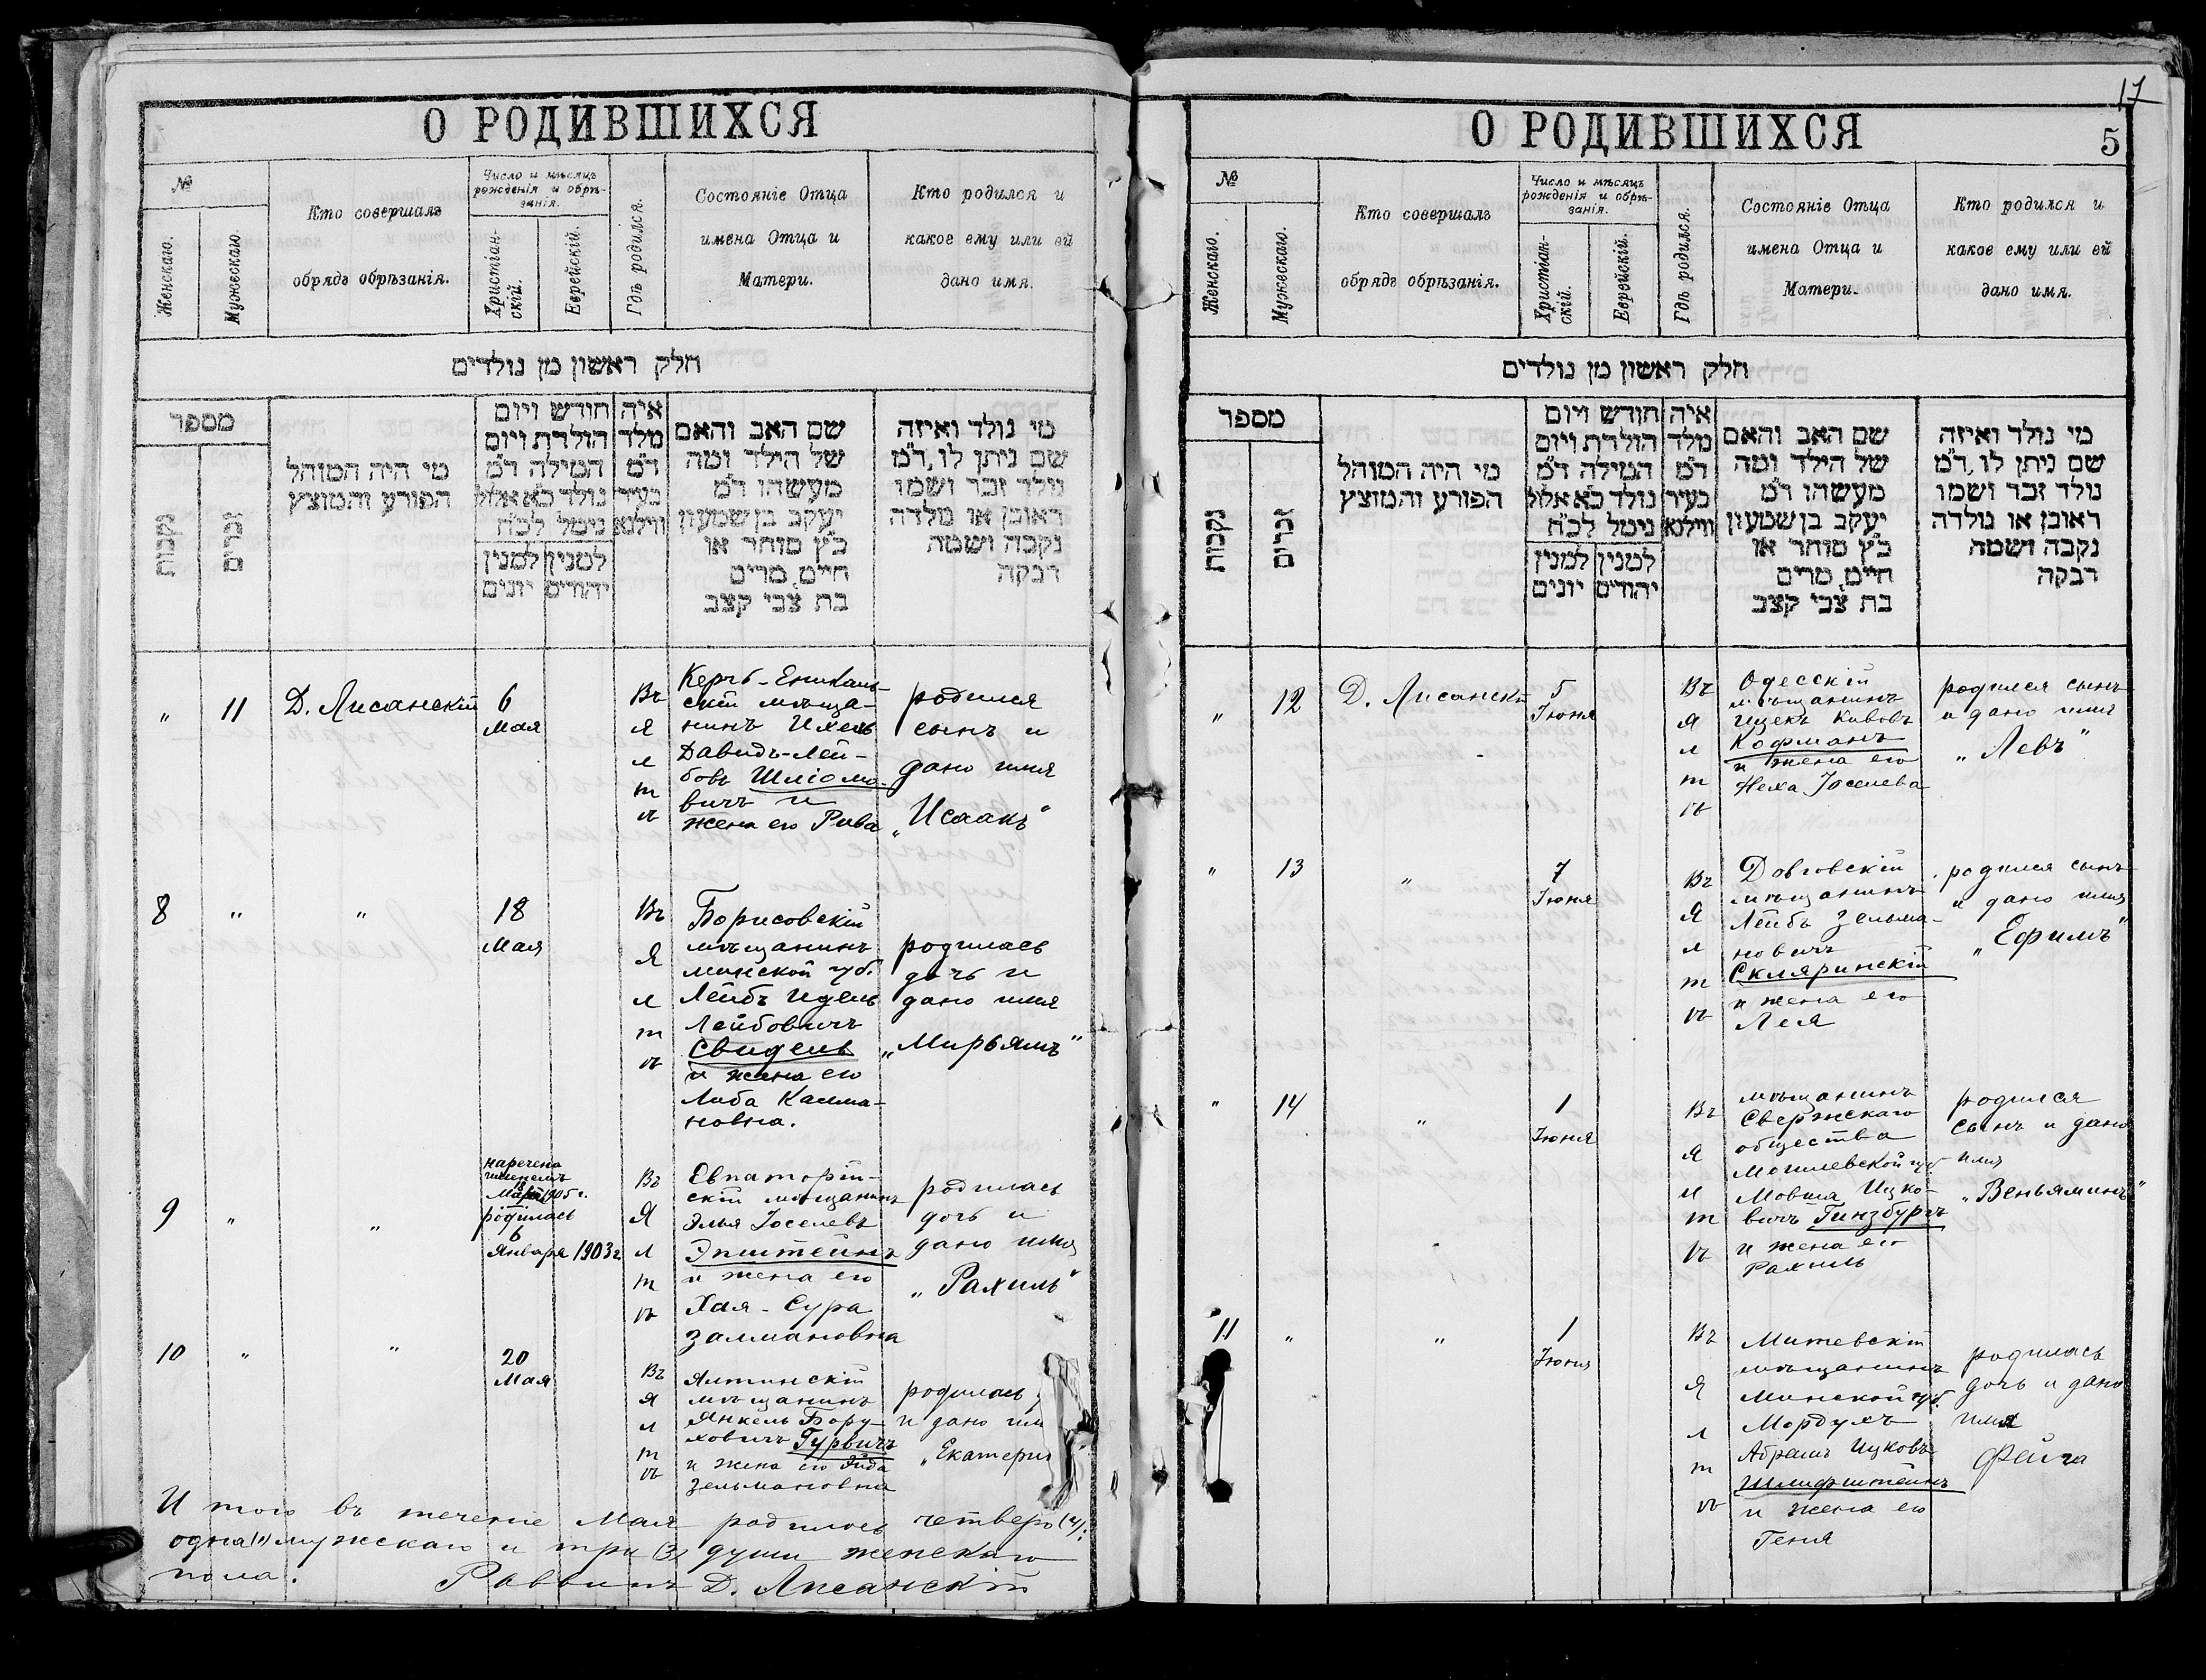 О РОДИВШИХСЯ
№
Женскаго.
Мужескаго.
Кто совершалъ
обрядъ обрѣзанія.
Число и мѣсяцъ
рожденія и обрѣ-
занія.
Христіан-
скій.
Еврейскій.
Гдѣ родился.
Состояніе Отца
имена Отца и
Матери.
Кто родился и
какое ему или ей
дано имя.
חלק ראשון מן נולדים
מספר
נקבות
זכרים
מי היה המוהל
הפורע והמוצץ
חודש ויום
הולדת ויום
המילה ד״מ
נולד כ״א אלול
נימל לכ״ח
למנין למנין
יהודים יונים
איה
מלד
ד״מ
בעיר
ווילנא
שם האב והאם
של הילד ומה
מעשהו ד״מ
יעקב בן שמעון
כ״ץ סוחר או
חיים, מרים
בת צבי קצב
מי נולד ואיזה
שם ניתן לו, ד״מ
נולד זכר ושמו
ראובן או נולדה
נקבה ושמה
רבקה
" 11 Д. Лисанскій
6
Мая
Въ
Я
л
т
ѣ
Керчь-Еникаль-
скій мѣща-
нинъ Ихель
Давидъ-Лей-
бовъ Шліомо-
вичъ и
жена его Рива
родился
сынъ и
дано имя
„Исаакъ"
8 " "
18
Мая
Въ
Я
л
т
ѣ
Борисовскій
мѣщанинъ
минской губ.
Лейбъ Идель
Лейбовичъ
Свидель
и жена его
Либа Калма-
новна.
родилась
дочь и
дано имя
„Мирьямъ"
9 " "
наречена
именемъ
18 Мая 1905 г.
родилась
6
Января 1903 г.
Въ
Я
л
т
ѣ
Евпаторій-
скій мѣщанинъ
Элья Іоселевъ
Эпштейнъ
и жена его
Хая-Сура
Залмановна
родилась
дочь и
дано имя
„Рахиль"
10 " "
20
Мая
Въ
Я
л
т
ѣ
Ялтинскій
мѣщанинъ
Янкель Бору-
ховичъ Гурвичъ
и жена его
Зельмановна
родилась
и дано им
„Екатерин
И того въ теченіе Мая родилось четверо (4):
одна (1) мужскаго и три (3) души женскаго
пола.
Раввинъ Д. Лисанскій
17
О РОДИВШИХСЯ
5
№
Женскаго.
Мужескаго.
Кто совершалъ
обрядъ обрѣзанія.
Число и мѣсяцъ
рожденія и обрѣ-
занія.
Христіан-
скій.
Еврейскій.
Гдѣ родился.
Состояніе Отца
имена Отца и
Матери.
Кто родился и
какое ему или ей
дано имя.
חלק ראשון מן נולדים
מספר
נקבות
זכרים
מי היה המוהל
הפורע והמוצץ
חודש ויום
הולדת ויום
המילה ד״מ
נולד כ״א אלול
נימל לכ״ח
למנין למנין
יהודים יונים
איה
מלד
ד״מ
בעיר
ווילנא
שם האב והאם
של הילד ומה
מעשהו ד״מ
יעקב בן שמעון
כ״ץ סוחר או
חיים, מרים
בת צבי קצב
מי נולד ואיזה
שם ניתן לו, ד״מ
נולד זכר ושמו
ראובן או נולדה
נקבה ושמה
רבקה
" 12 Д. Лисанскій
5
Іюня
Въ
Я
л
т
ѣ
Одесскій
мѣщанинъ
Ицекъ Кивовъ
Кофманъ
и жена его
Неха Іоселева
родился сынъ
и дано имя
„Левъ"
" 13 "
7
Іюня
Въ
Я
л
т
ѣ
Довговскій
мѣщанинъ
Лейбъ Зельма-
новичъ
Скляринскій
и жена его
Лея
родился сынъ
и дано имя
„Ефимъ"
" 14 "
1
Іюня
Въ
Я
л
т
ѣ
мѣщанинъ
Свержскаго
общества
Могилевской губ
Мовша Ицко-
вичъ Гинзбургъ
и жена его
Рахиль
родился
сынъ и дано
имя
„Веньяминъ"
11 " "
1
Іюня
Въ
Я
л
т
ѣ
Митевскій
мѣщанинъ
Минской губ.
Мордухъ
Абрамъ Ицковъ
Шлифштейнъ
и жена его
Геня
родилась
дочь и дано
имя
Фейга